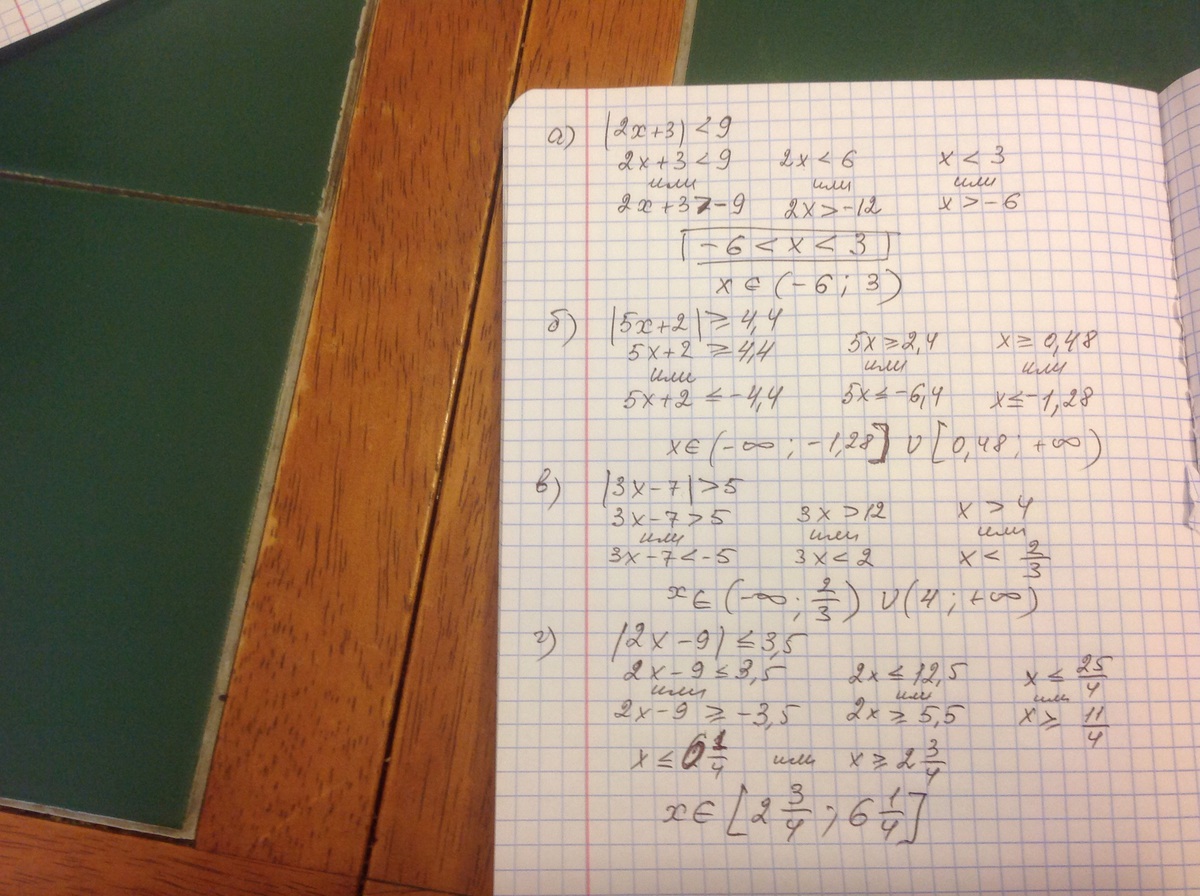 а) |2x+3| < 9
2x+3 < 9 2x < 6 x < 3
или или или
2x+3 > -9 2x > -12 x > -6
-6 < x < 3
x ∈ (-6; 3)
б) |5x+2| ≥ 4,4
5x+2 ≥ 4,4 5x ≥ 2,4 x ≥ 0,48
или или или
5x+2 ≤ -4,4 5x ≤ -6,4 x ≤ -1,28
x ∈ (-∞; -1,28] ∪ [0,48; +∞)
в) |3x-7| > 5
3x-7 > 5 3x > 12 x > 4
или или или
3x-7 < -5 3x < 2 x < 2/3
x ∈ (-∞; 2/3) ∪ (4; +∞)
г) |2x-9| ≤ 3,5
2x-9 ≤ 3,5 2x ≤ 12,5 x ≤ 25/4
или или или
2x-9 ≥ -3,5 2x ≥ 5,5 x ≥ 11/4
x ≤ 6 1/4 или x ≥ 2 3/4
x ∈ [2 3/4; 6 1/4]